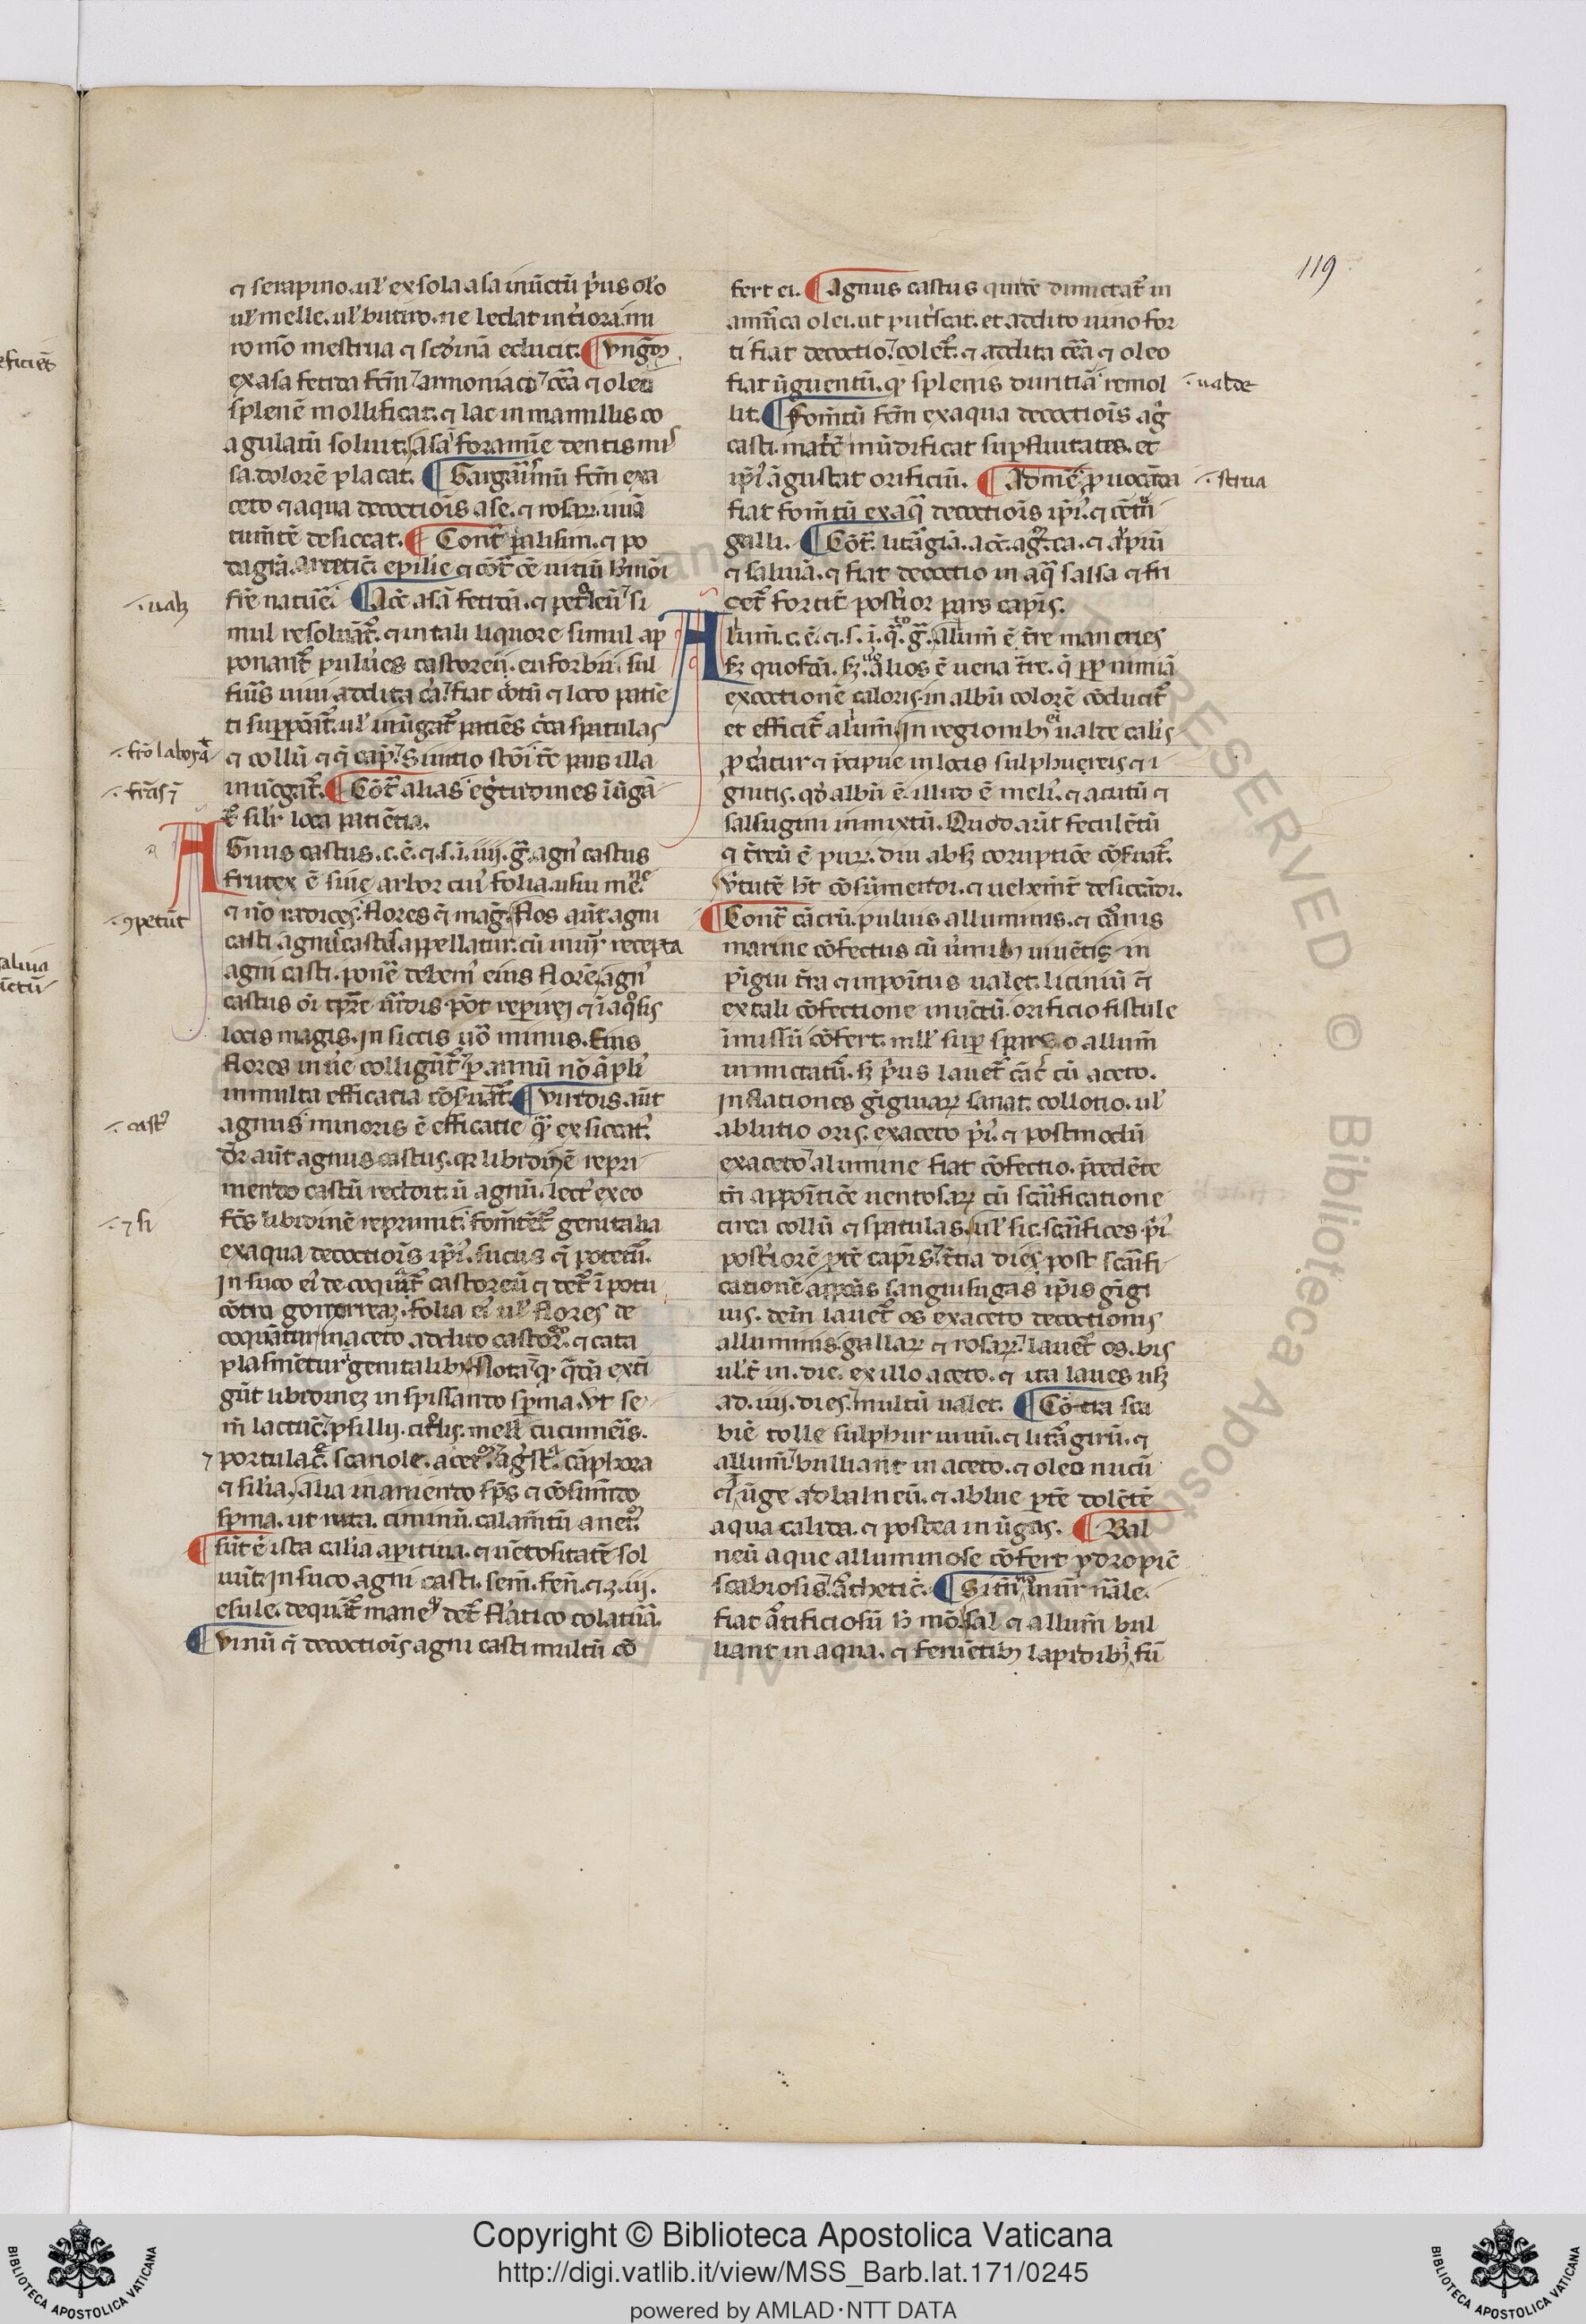 119
⁊ serapino. ul' ex sola asa inūctū p̄us olo
ul' melle. ul' butiro. ne ledat int̄iora. mi
ro mō mestrua ⁊ scd̄inā educit. ¶ Vnḡtꝫ
ex asa fetida fc̄m ⁊ armoniaco ⁊ cēa ⁊ oleo
splenē mollificat. ⁊ lac in mamillis co
agulatū soluit. asa foramīe dentis mis
sa. dolorē placat. ¶ Gargaͥsmū fc̄m ex a
ceto ⁊ aqua decoctiōis ase. ⁊ rosaꝝ. uuā
tumētē desiccat. ¶ Cont̄ palisim. ⁊ po
dagrā. Artetic̄. epiliē ⁊ cōt̄ oē uitiū hmōi
fit̄e natiuē. ¶ Ac̄e asā fetidā. ⁊ pet̄leū si
mul resoluāt̄. ⁊ in tali liquore simul ap
ponant̄ pulūes castorei. euforbii. sul
furis uiui. addita cā fiat cōtū ⁊ loco patiē
ti suppōat̄. ul' inūgat̄ patiēs c̄ca spatulas
⁊ collū
inūcgat̄. ¶ Cōt̄ alias eḡtudines iūgā
t̄ silr̄ loca patiētia.
AGnus castus. c. ē. ⁊. s. ī. iiij. ḡ. agn' castus
frutex ē siue arbor cui' folia. usui
⁊ nō radices. flores ⁊ mag̃. flos aūt agni
casti agnus castus appellatur. cū inuēr̄ recepta
agni casti. poūe debem' eius florē. agn'
castus oī tp̄re uīdis pōt repiri. ⁊ ī aqōsis
locis magis. In siccis uō minus. Eius
flores in uē colligūt̄ p annū nō āpli'
in multa efficacia cōsuāt̄. ¶ Viridis aūt
agnus minoris ē efficatie qͣ exsiccat'.
dr̄ aūt agnus castus. qꝛ libidinē repri
mendo castū reddit ut agnū. lect' ex eo
fc̄s libidinē reprimit. fomētēt̄ genitalia
ex aqua decoctiōis ip̄i'. sucus ⁊ potetur.
In suco ei' decoquāt̄ castoreū ⁊ det̄ ī potu
cōtra gonorreaꝫ. folia ei' ul' flores de
coquātur in aceto. addito castoreo. ⁊ cata
plasmētur genitalibꝫ. Nota qꝫ qdā exti
gūt libidineꝫ in spissando sp̄ma. Vt se
m̄ lactuc̄. psillij. citͥlis. mell. cucumēis.
portulac̄. scariole. acet. agst̄. cāphora
⁊ silia. alia inaniendo sp̄s ⁊ cōsumēdo
sp̄ma. ut ruta. ciminū. calam̄tū. anet'
¶ sūt ē ista calia apitiua. ⁊ uētositatē sol
uūt. In suco agni casti. sem̄. fen̄. ⁊ ʒ. iij.
esule. dequāt̄ mane det̄ fl'atico colatuā.
¶ Vinū ⁊ decoctiōis agni casti multū cō
fert ei. ¶ Agnus castus
amūca olei. ut put̄scat. et addito uino for
ti fiat decoctio. colet̄. ⁊ addita cēa ⁊ oleo
fiat ūguentū. qꝫ splenis duritiā remol
lit. ¶ Fom̄tū fc̄m ex aqua decoctiōis ag̃
casti. mat̄c̄ mūdificat supfluitates. et
ip̄i' āgustat orificiū. ¶ Ad mē. puocāda
fiat fom̄tū ex aqͣ decoctiōis ip̄i'. ⁊ cētū
galli. ¶ Cōt̄. litargiā. ac̄. ag̃. ca. ⁊ apiū
⁊ saluiā. ⁊ fiat decoctio in aqͣ salsa ⁊ fri
cet̄ fortit̄ post̄ior pars capis.
Alum̄. c. ē. ⁊. s. ī. qͣ. g̃. alum̄ ē t̄re maneries
scꝫ quosdā. scꝫ alios ē uena t̄re. q̄ pp nimiā
excoctionē caloris. in albū colorē cōducit̄
et efficit̄ alum̄. In regionibꝫ ualde calis
pcatur ⁊ p̄cipue in locis sulphureis ⁊ i
gnitis. qd̄ albū ē. illud ē meli'. ⁊ acutū ⁊
salsugini inmixtū. Quod aūt feculētū
⁊ t̄reū ē puꝝ. diu absꝫ coruptiōe cōsuat̄.
ūtutē ht̄ cōsumendi. ⁊ uehem̄t̄ desiccādi.
¶ Cont̄ cācrū. puluis alluminis. ⁊ cōnis
marine cōfectus cū ūmibꝫ inuētis in
pigui t̄ra ⁊ inpoītus ualet. liciniū ⁊
ex tali cōfectione inūctū. orificio fistule
imissū cōfert. mll' sup sparso allum̄
inmictatū. sꝫ p̄us lauet̄ cāc̄ cū aceto.
Inflationes gigiuaꝝ sanat. collotio. ul'
ablutio oris. ex aceto p̄i'. ⁊ postmodū
ex aceto ⁊ alumine fiat cōfectio. p̄cedēte
tn̄ appoītiōe uentosaꝝ cū scaīficatione
circa collū ⁊ spatulas. ul' sic. scaīfices p̄i
post̄iorē ptē capis. t̄tia die post scaīfi
cationē appoās sanguisugas ip̄is gigi
uis. dein lauet̄ os ex aceto decoctionis
alluminis. gallaꝝ ⁊ rosaꝝ. lauet̄ os. bis
ul' t̄ in. die. ex illo aceto. ⁊ ita laues usꝫ
ad. iiij. dies. multū ualet. ¶ Cōtra sca
biē tolle sulphur uiuū. ⁊ litāgirū. ⁊
allum̄. bulliant in aceto. ⁊ oleo nucū
⁊ ūge ad balneū. ⁊ ablue ptē dolētē
aqua calida. ⁊ postea inūgas. ¶ Bal
neū aque alluminose cōfert ydropic̄
scabiosis. ātheticͥ. ¶ Si tn̄ nō inuēr̄ nāle.
fiat artificiosū h̄ mō. sal ⁊ allum̄ bul
liant in aqua. ⁊ feruētibꝫ lapidibꝫ. fū
∴ ualꝫ
∴ frō laborā
∴ ꝯpetūt
∴ cast'
∴ ⁊ si
∴ ualde
∴ strua
Copyright © Biblioteca Apostolica Vaticana
http://digi.vatlib.it/view/MSS_Barb.lat.171/0245
powered by AMLAD·NTT DATA
BIBLIOTECA APOSTOLICA VATICANA
BIBLIOTECA APOSTOLICA VATICANA